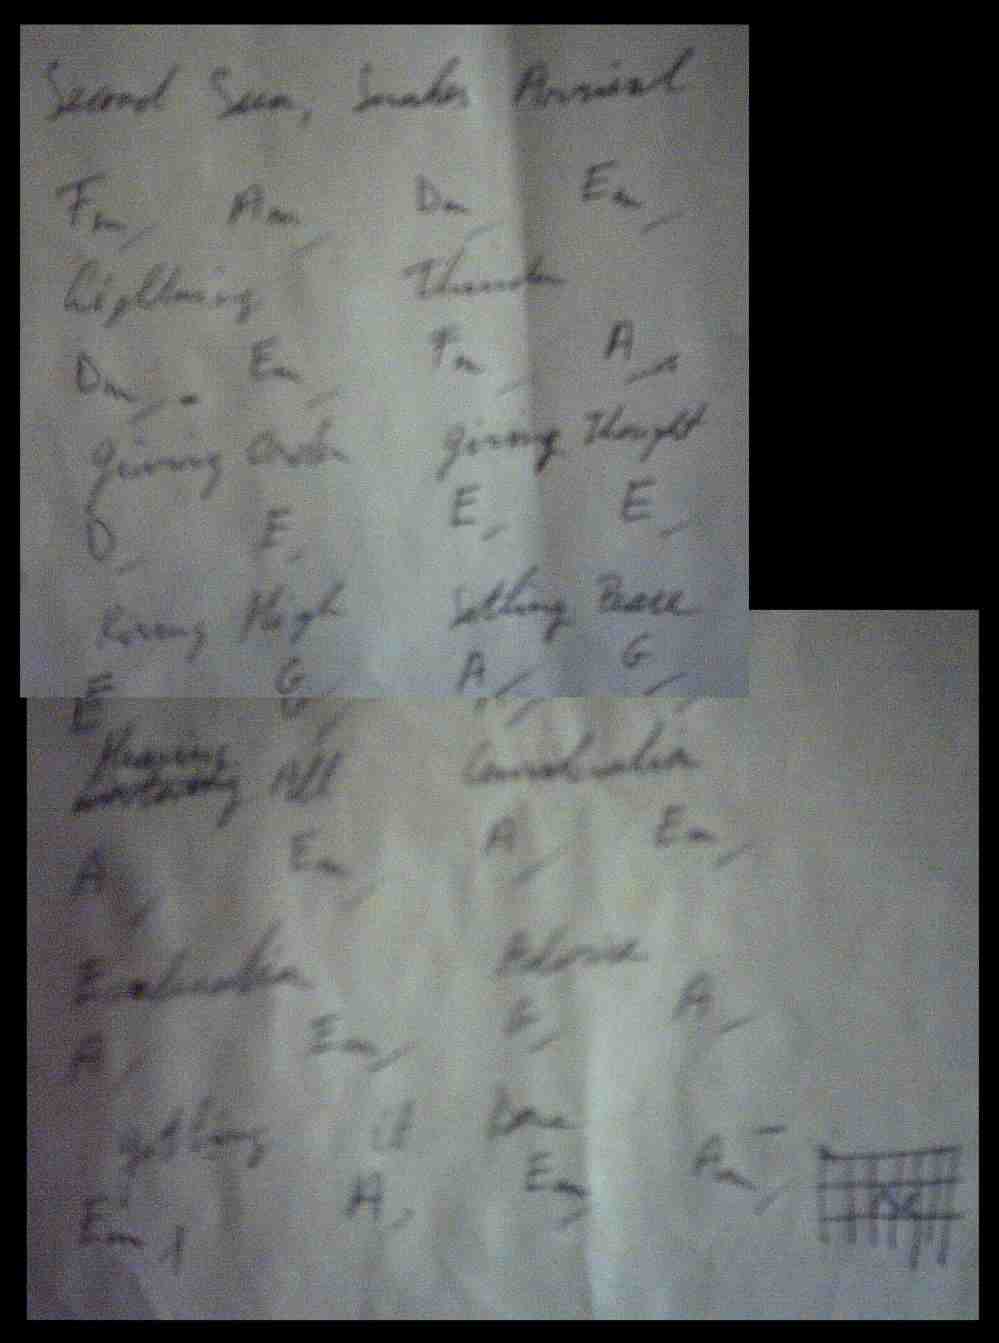 Second Sun, Snakes Arrival
Fm / Am / Dm / Em /
Lightning Thunder
Dm / Em / Fm / A /
giving Order giving Thought
D / E / E / E /
Rising High Setting Peace
E G / A / G /
Hearing All Consideration
A / Em / A / Em /
Evaluation Advice
A / Em / G / A /
getting it Done
Em / A / Em / Am /